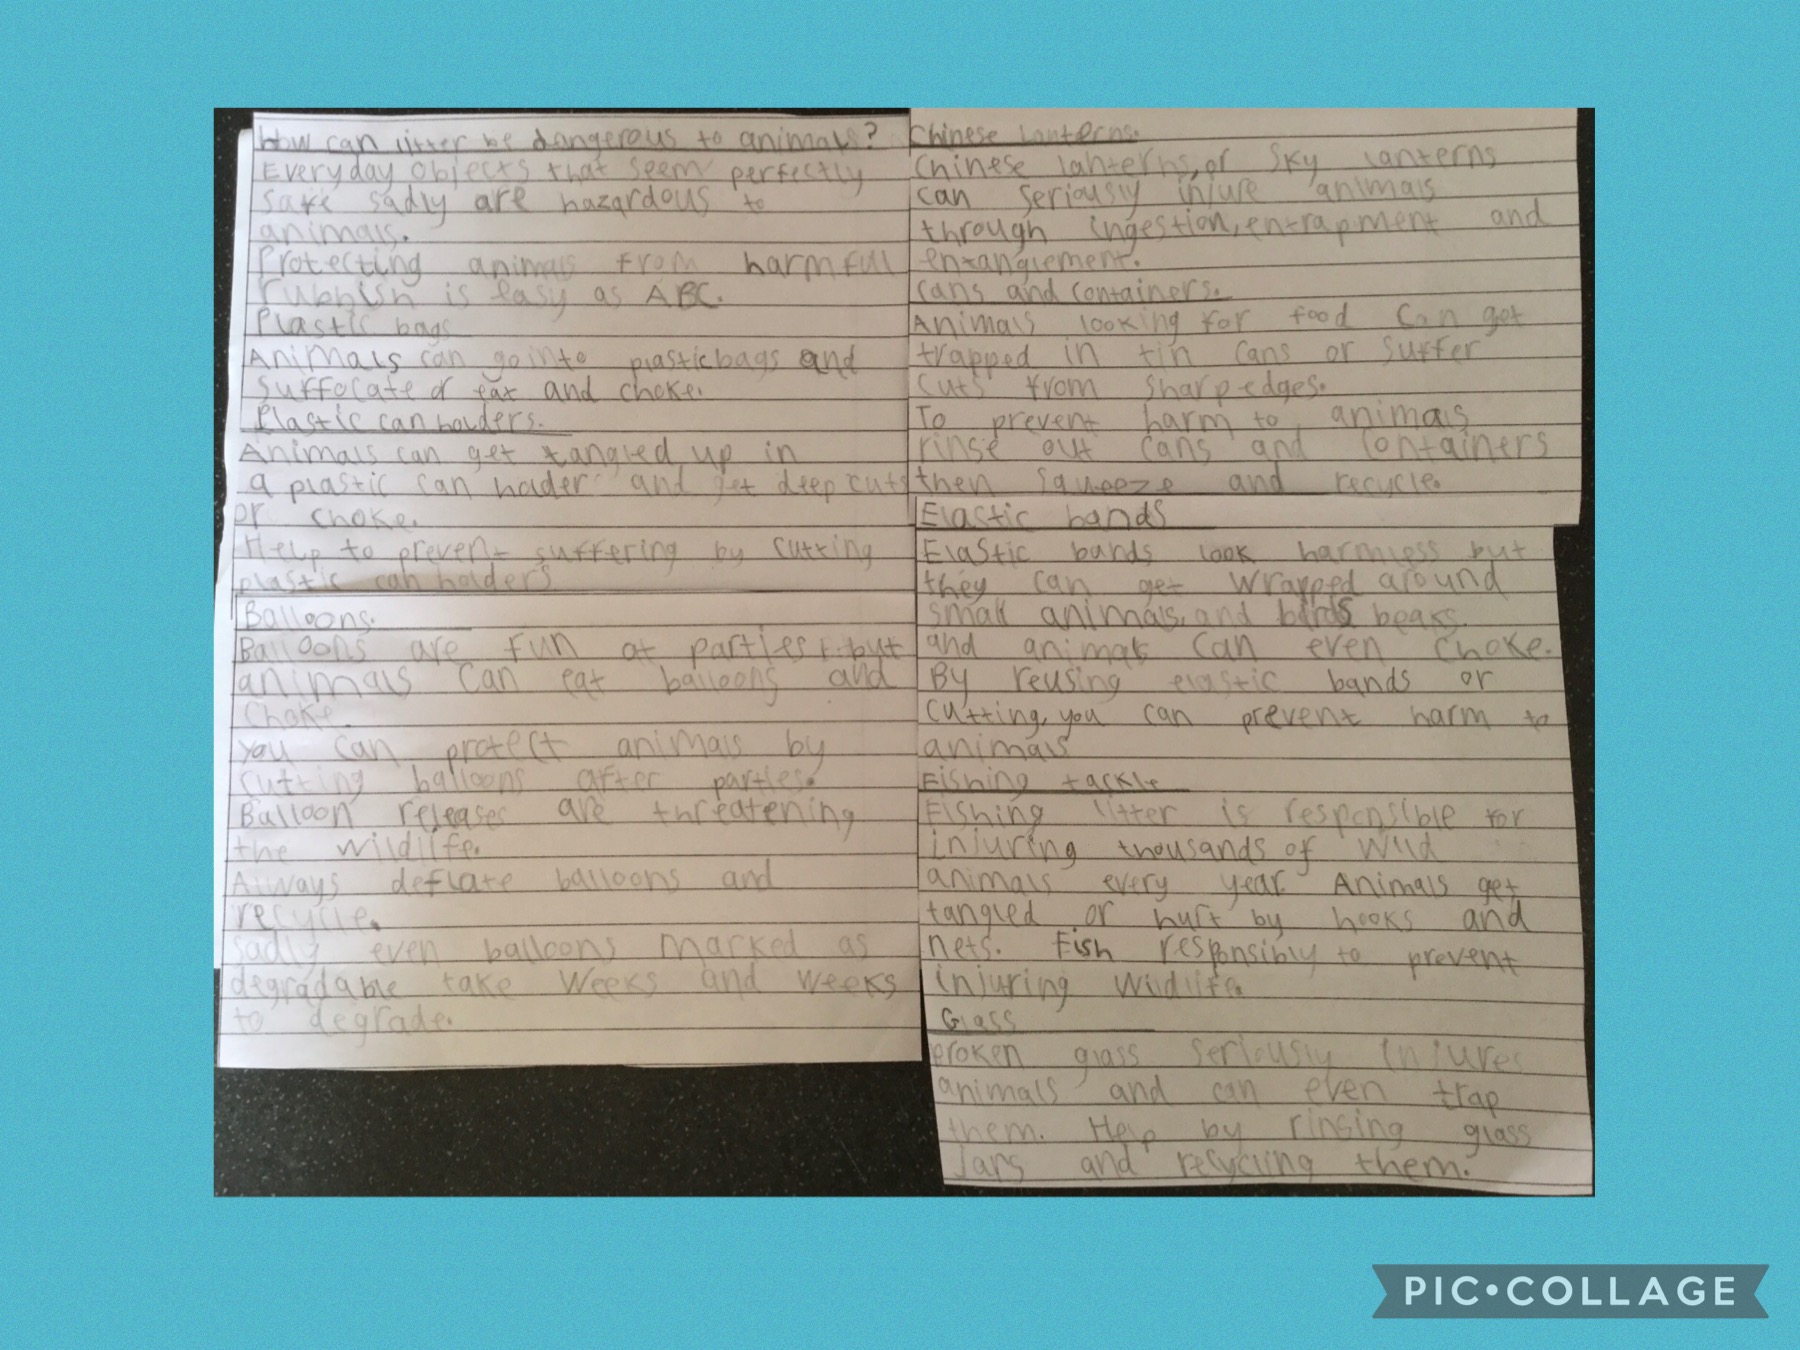 How can litter be dangerous to animals?
Everyday objects that seem perfectly
safe sadly are hazardous to
animals.
Protecting animals from harmfull
rubbish is easy as ABC.
Plastic bags
Animals can go into plastic bags and
suffocate or eat and choke.
Plastic can holders.
Animals can get tangled up in
a plastic can holder and get deep cuts
or choke.
Help to prevent suffering by cutting
plastic can holders
Balloons.
Balloons are fun at parties, but
animals can eat balloons and
choke.
you can protect animals by
cutting balloons after parties.
Balloon releases are threatening
the wildlife.
Always deflate balloons and
recycle.
sadly even balloons marked as
degradable take weeks and weeks
to degrade.
Chinese lanterns.
Chinese lanterns, or sky lanterns
can seriously injure animals
through ingestion, entrapment and
entanglement.
cans and containers.
Animals looking for food can get
trapped in tin cans or suffer
cuts from sharp edges.
To prevent harm to animals
rinse out cans and containers
then squeeze and recycle.
Elastic bands
Elastic bands look harmless but
they can get wrapped around
small animals, and birds beaks
and animals can even choke.
By reusing elastic bands or
cutting, you can prevent harm to
animals
Fishing tackle
Fishing litter is responsible for
injuring thousands of wild
animals every year. Animals get
tangled or hurt by hooks and
nets. Fish responsibly to prevent
injuring wildlife.
Glass
Broken glass seriously injures
animals and can even trap
them. Help by rinsing glass
Jars and recycling them.
PIC•COLLAGE